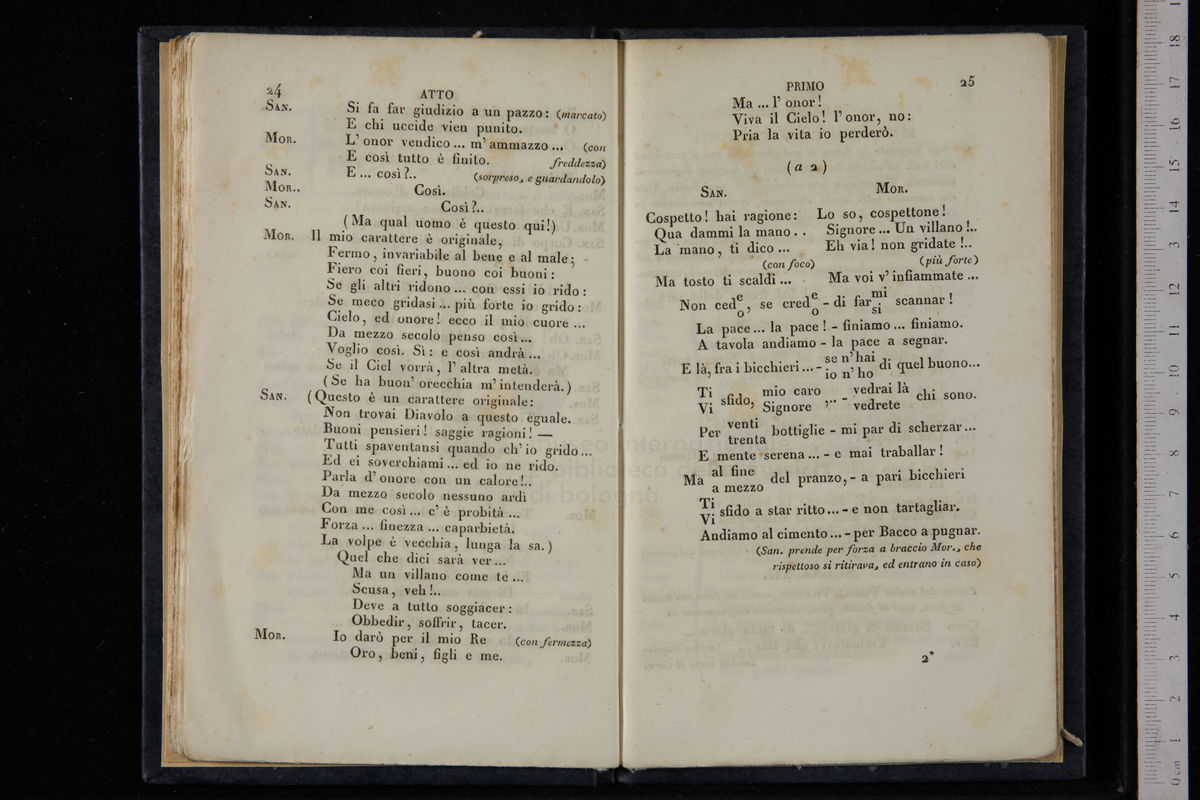 24
ATTO
SAN. Si fa far giudizio a un pazzo: (marcato)
E chi uccide vien punito.
MOR. L' onor vendico ... m' ammazzo ... (con
E così tutto è finito. freddezza)
SAN. E ... così?.. (sorpreso, e guardandolo)
MOR.. Così.
SAN. Così?..
(Ma qual uomo è questo qui!)
MOR. Il mio carattere è originale,
Fermo, invariabile al bene e al male;
Fiero coi fieri, buono coi buoni:
Se gli altri ridono ... con essi io rido:
Se meco gridasi ... più forte io grido:
Cielo, ed onore! ecco il mio cuore ...
Da mezzo secolo penso così ...
Voglio così. Sì: e così andrà ...
Se il Ciel vorrà, l' altra metà.
(Se ha buon' orecchia m' intenderà.)
SAN. (Questo è un carattere originale:
Non trovai Diavolo a questo eguale.
Buoni pensieri! saggie ragioni! —
Tutti spaventansi quando ch' io grido ...
Ed ei soverchiami ... ed io ne rido.
Parla d' onore con un calore!..
Da mezzo secolo nessuno ardì
Con me così ... c' è probità ...
Forza ... finezza ... caparbietà.
La volpe è vecchia, lunga la sa.)
Quel che dici sarà ver ...
Ma un villano come te ...
Scusa, veh!..
Deve a tutto soggiacer:
Obbedir, soffrir, tacer.
MOR. Io darò per il mio Re (con fermezza)
Oro, beni, figli e me.
PRIMO
25
Ma ... l' onor!
Viva il Cielo! l' onor, no:
Pria la vita io perderò.
(a 2)
SAN. MOR.
Cospetto! hai ragione: Lo so, cospettone!
Qua dammi la mano . . Signore ... Un villano!..
La mano, ti dico ... Eh via! non gridate!..
(con foco) (più forte)
Ma tosto ti scaldi ... Ma voi v' infiammate ...
Non cede/o, se crede/o - di farmi/si scannar!
La pace ... la pace! - finiamo ... finiamo.
A tavola andiamo - la pace a segnar.
E là, fra i bicchieri ... - se n' hai/io n' ho di quel buono...
Ti/Vi sfido, mio caro/Signore ... - vedrai là/vedrete chi sono.
Per venti/trenta bottiglie - mi par di scherzar ...
E mente serena ... - e mai traballar!
Ma al fine/a mezzo del pranzo, - a pari bicchieri
Ti/Vi sfido a star ritto ... - e non tartagliar.
Andiamo al cimento ... - per Bacco a pugnar.
(San. prende per forza a braccio Mor., che
rispettoso si ritirava, ed entrano in casa)
2*